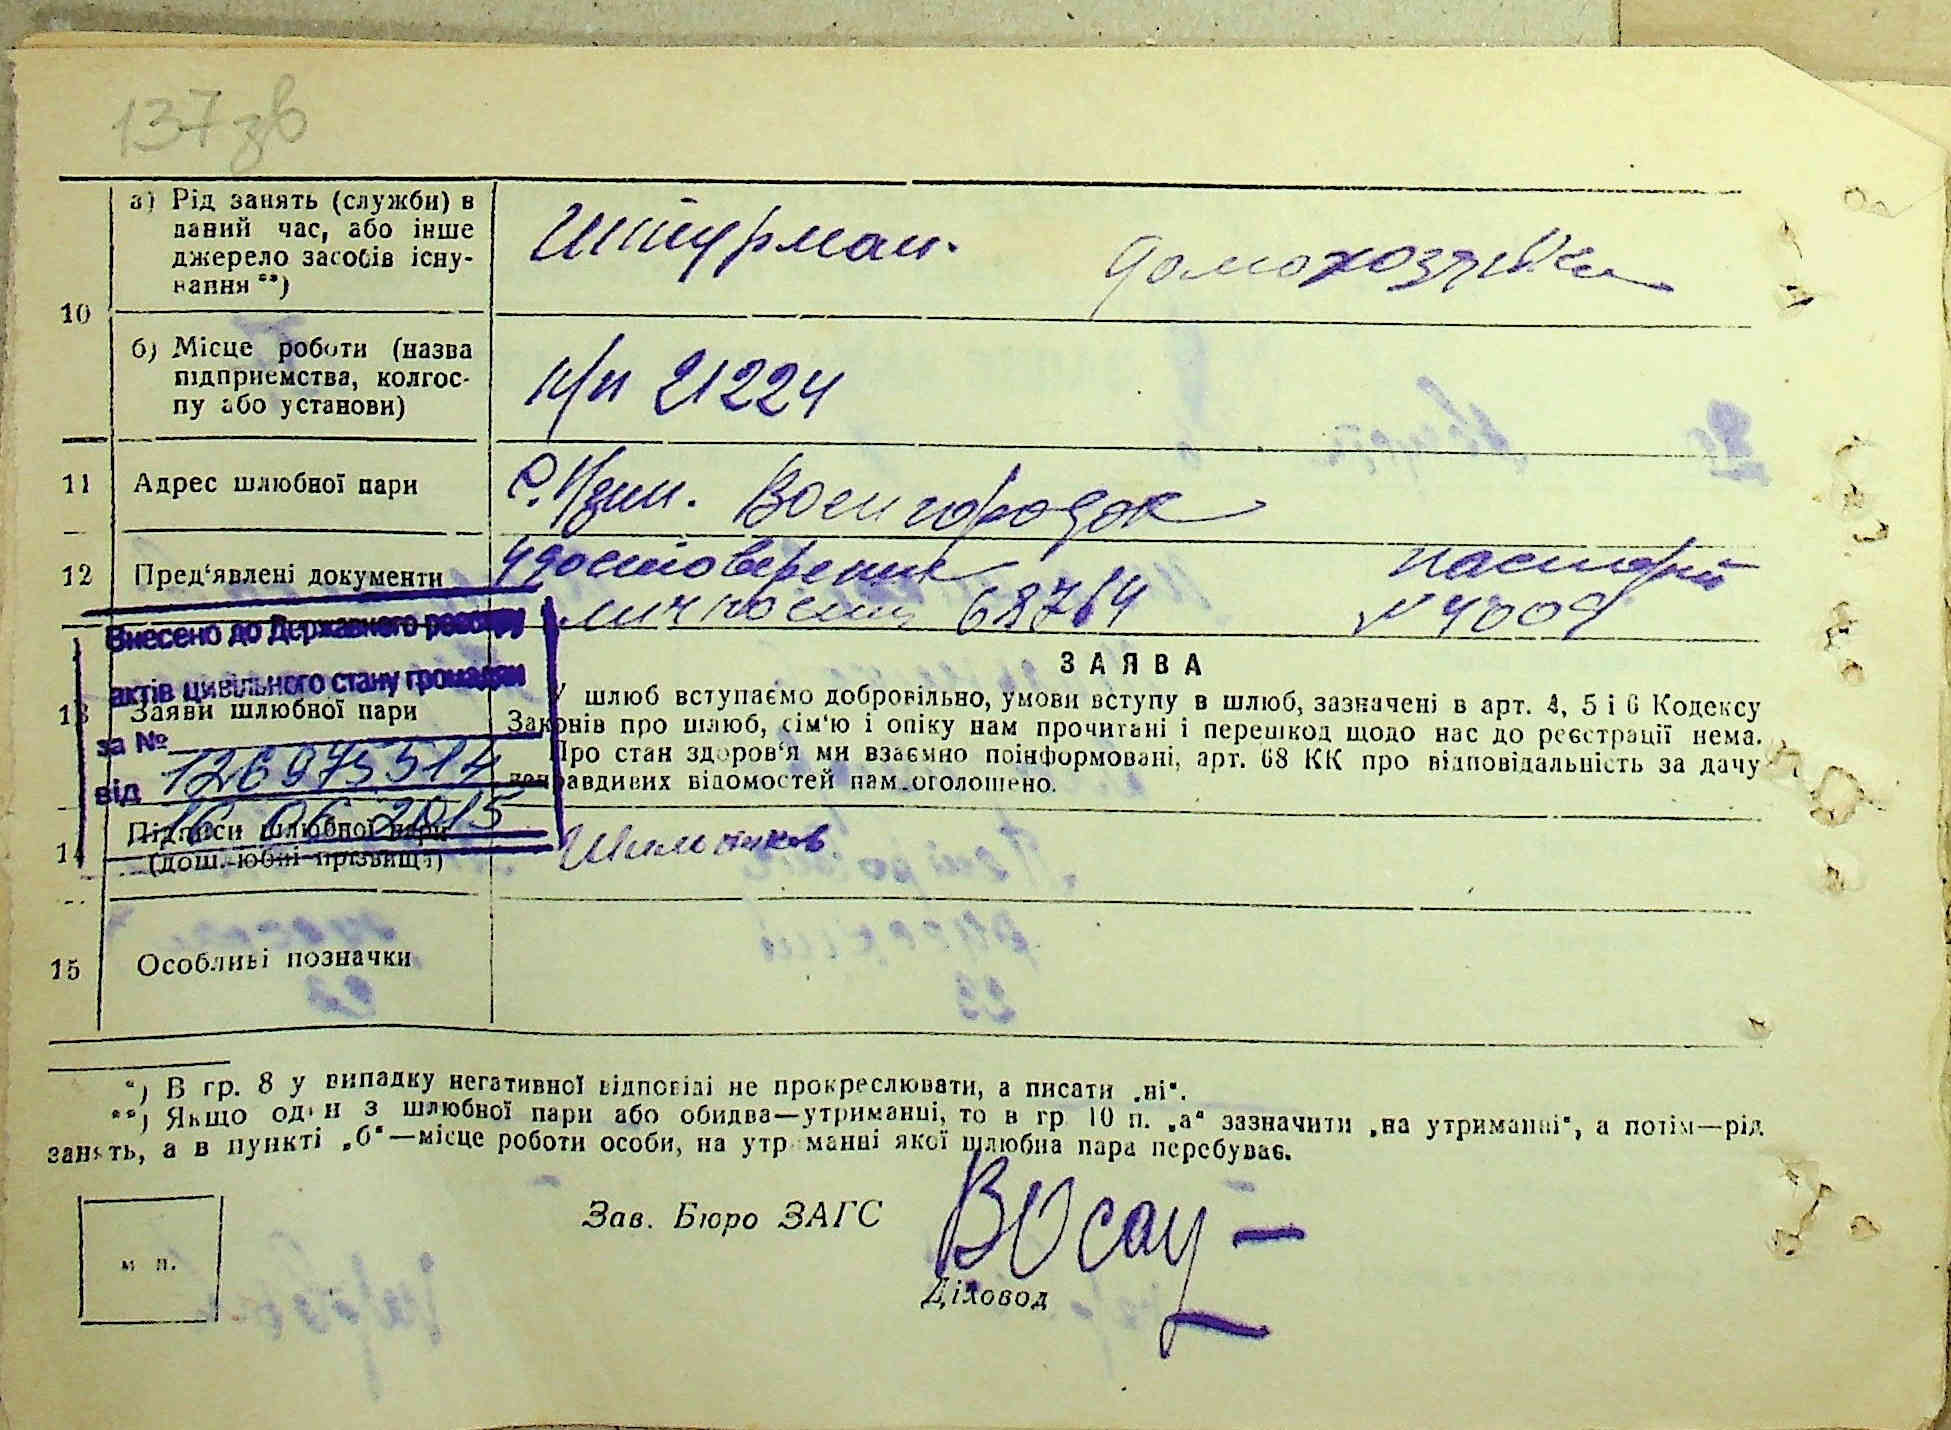 137 зв
а) Рід занять (служби) в
даний час, або інше
джерело засобів існу-
вання **)
Штурман.
домохозяйка
10
б) Місце роботи (назва
підприємства, колгос-
пу або установи)
п/п 21224
11 Адрес шлюбної пари
Воен городок
12 Пред'явлені документи
удостоверение
личности 68764
паспорт
№ 4009
Внесено до Державного реєстру
актів цивільного стану громадян
за № 126975514
від 16 06 2015
13 Заяви шлюбної пари
ЗАЯВА
У шлюб вступаємо добровільно, умови вступу в шлюб, зазначені в арт. 4, 5 і 6 Кодексу
Законів про шлюб, сім'ю і опіку нам прочитані і перешкод щодо нас до реєстрації нема.
Про стан здоров'я ми взаємно поінформовані, арт. 68 КК про відповідальність за дачу
неправдивих відомостей нам оголошено.
14 Підписи шлюбної пари
(дошлюбні прізвищі)
15 Особливі позначки
*) В гр. 8 у випадку негативної відповіді не прокреслювати, а писати „ні".
**) Якщо один з шлюбної пари або обидва—утриманці, то в гр 10 п. „а" зазначити „на утриманні", а потім—рід
занять, а в пункті „б"—місце роботи особи, на утриманні якої шлюбна пара перебуває.
Зав. Бюро ЗАГС
Діловод
м п.